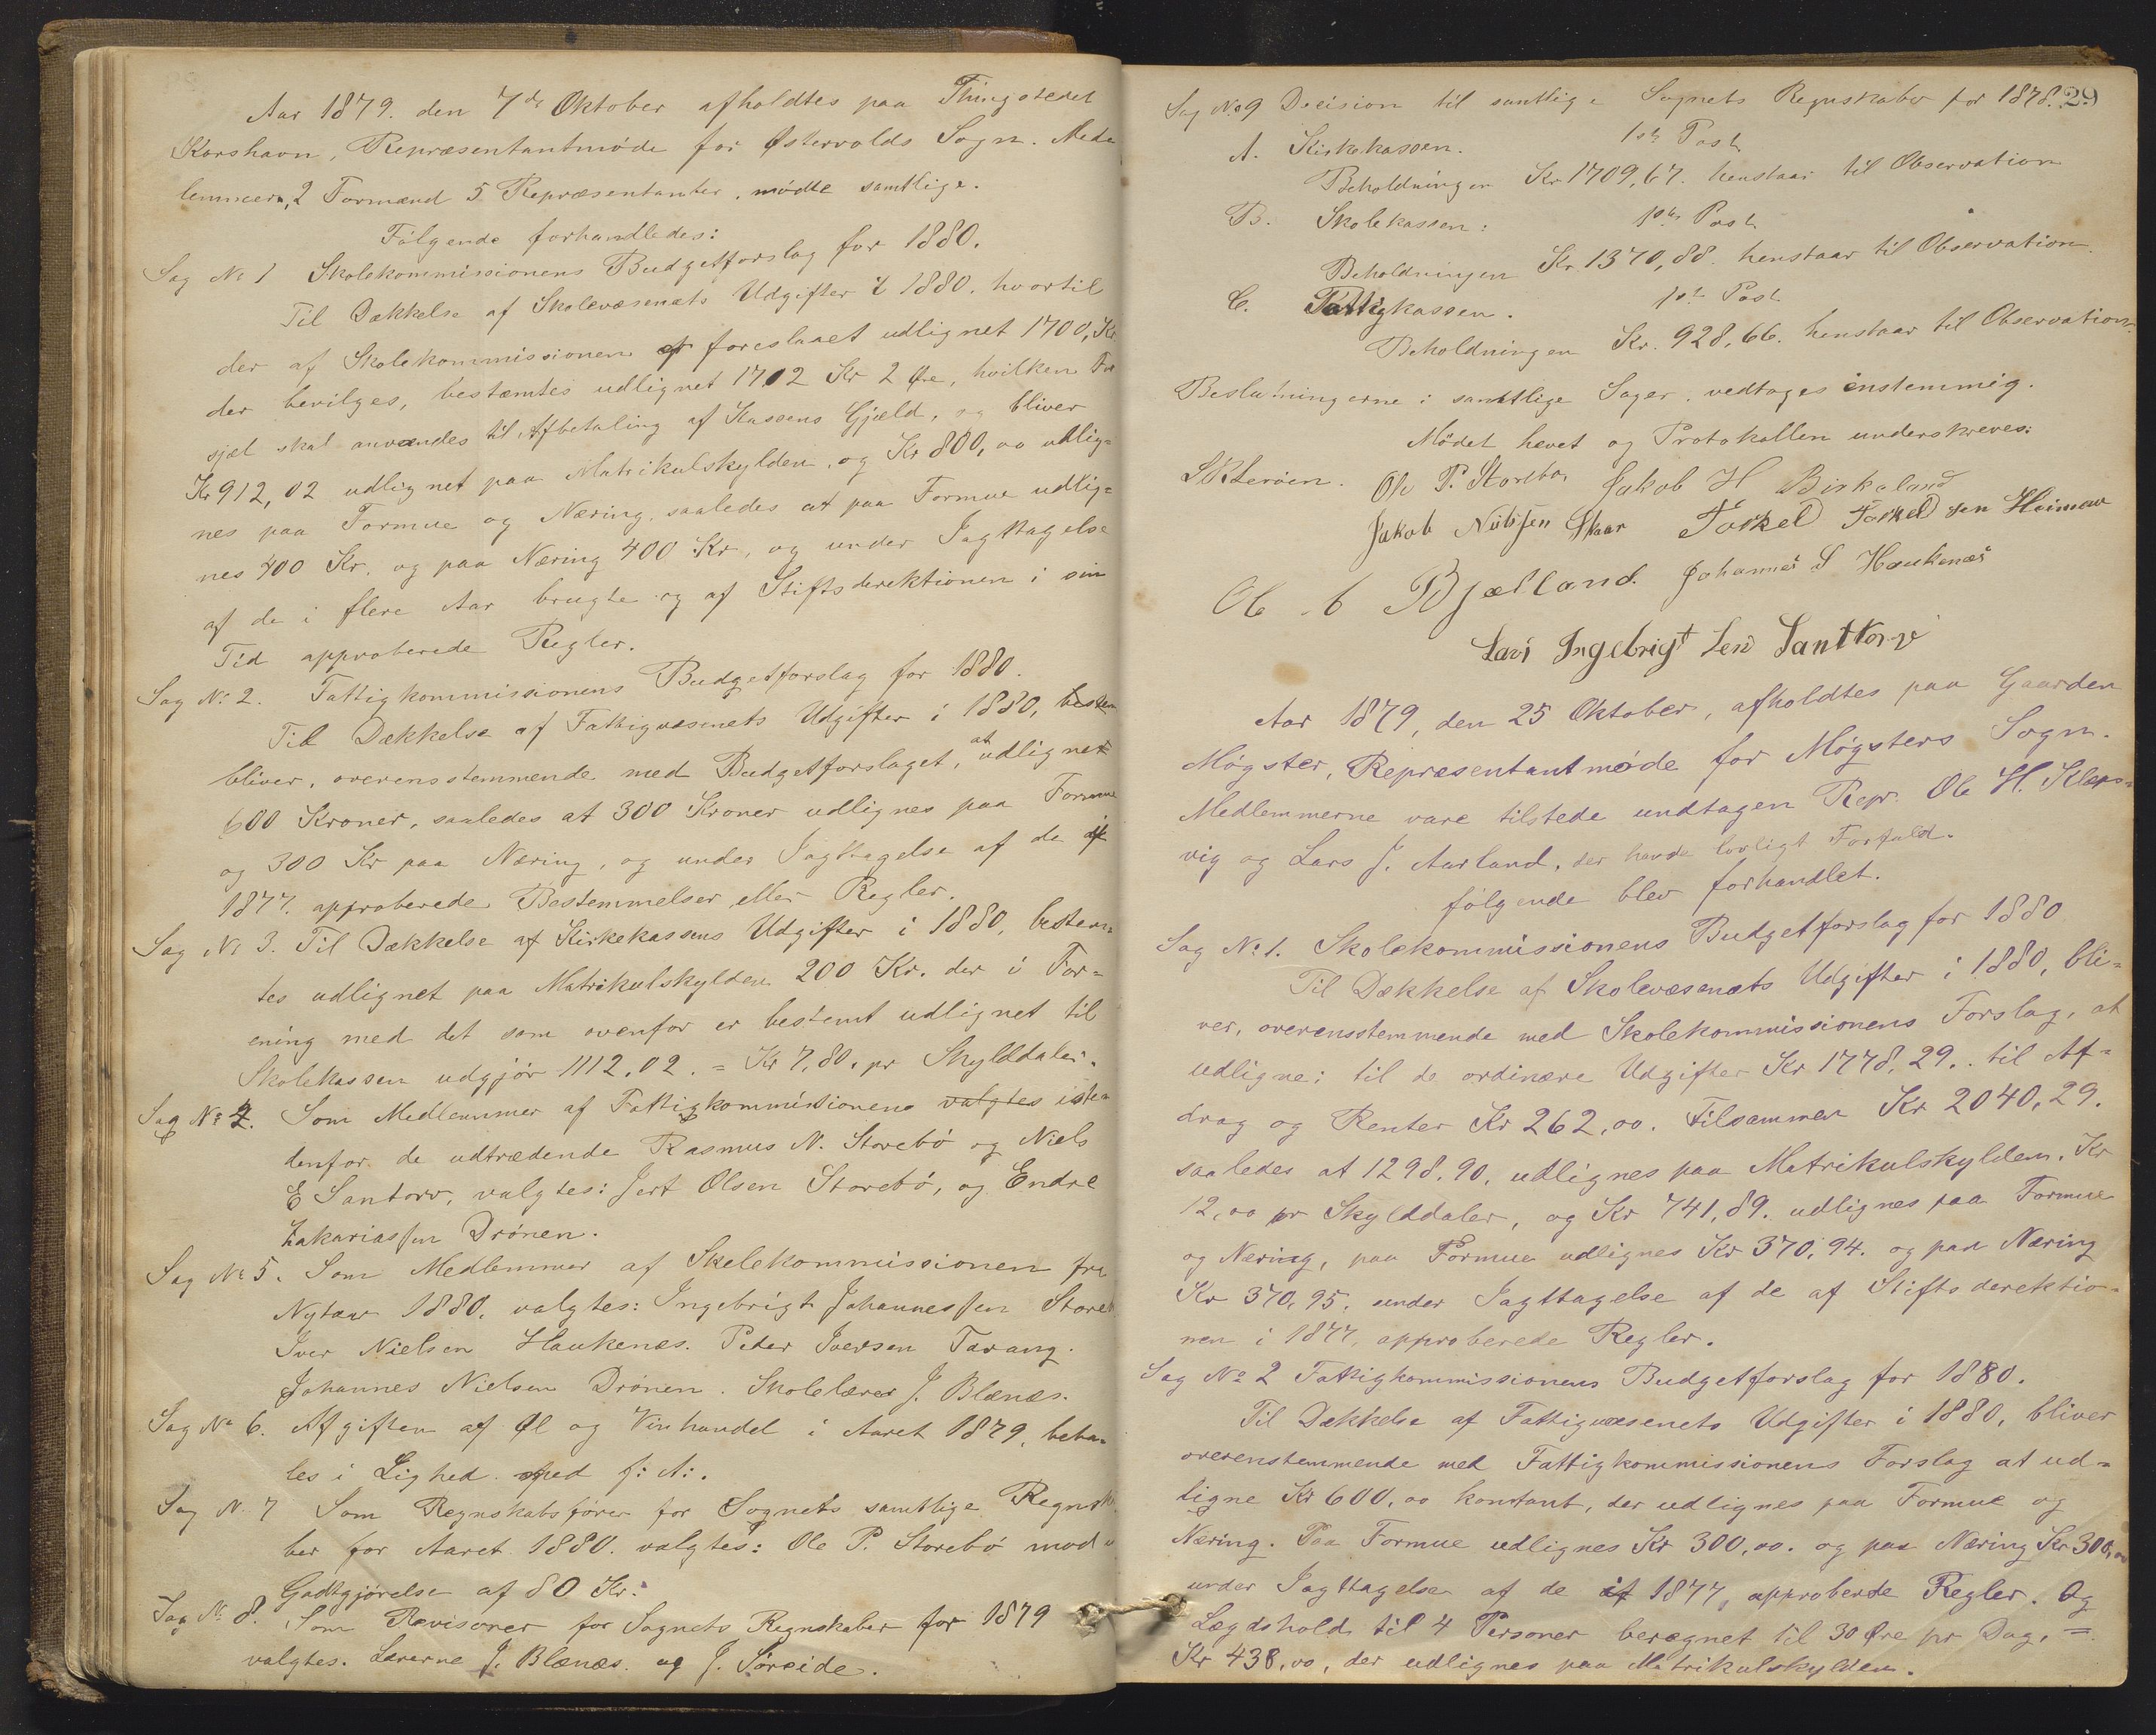 Aar 1879. den 7de Oktober afholdtes paa Thingstedet
Korshavn, Repræsentantmøde for Østervolds Sogn. Med-
lemmern, 2 Formænd 5 Repræsentanter, mødte samtlige.
Følgende forhandledes:
Sag No 1 Skolekommissionens Budgetforslag for 1880.
Til Dækkelse af Skolevæsenets Udgifter i 1880. hvortil
der af Skolekommissionen er foreslaaet udlignet 1700, Kr
der bevilges, bestemtes udlignet 1702 Kr 2 Øre, hvilken
sjel skal anvendes til Afbetaling af Kassens Gjæld, og bliver
Kr 912,02 udlignet paa Matrikulskylden, og Kr 800,00 udlig=
nes paa Formue og Næring, saaledes at paa Formue udlig=
nes 400 Kr. og paa Næring 400 Kr, og under Iagttagelse
af de i flere Aar brugte og af Stiftsderektionen i sin
Tid approberede Regler.
Sag No 2. Fattigkommissionens Budgetforslag for 1880.
Til Dækkelse af Fattigvæsenets Udgifter i 1880,
bliver, overensstemmende med Budgetforslaget, at udligne
600 Kroner, saaledes at 300 Kroner udlignes paa Formue
og 300 Kr paa Næring, og under Iagttagelse af de if
1877. approberede Bestemmelser eller Regler.
Sag No 3. Til Dækkelse af Kirkekassens Udgifter i 1880, bestem=
tes udlignet paa Matrikulskylden 200 Kr. der i For=
ening med det som ovenfor er bestemt udlignet til
Skolekassen udgjør 1112.02. = Kr 7,80. pr Skylddaler.
Sag No 4. Som Medlemmer af Fattigkommissionens valgtes istea
denfor de udtrædende Rasmus N. Storebø og Niels
E Santorv, valgtes: Jert Olsen Storebø, og Endre
Zakariassen Drønen.
Sag No 5. Som Medlemmer af Skolekommissionen fra
Nytaar 1880. valgtes: Ingebrigt Johannessen Store
Iver Nielsen Haukenes. Peder Iversen Tarang.
Johannes Nielsen Drønen. Skolelærer J. Blænæs.
Sag No 6. Afgiften af Øl og Vinhandel i Aaret 1879, beta=
les i Lighed med f: A:.
Sag N. 7 Som Regnskabsfører for Sognets samtlige Regnsk
ber for Aaret 1880. valgtes: Ole P. Storebø mod
Godtgjørelse af 80 Kr.
Sag No 8. Som Revisorer for Sognets Regnskaber for 1879
valgtes. Lærerne J. Blænæs. og J. Søreide.
29
Sag No 9 Decision til samtlige Sognets Regnskaber for 1878.
A. Kirkekassen. 1ste Post
Beholdningen Kr 1709,67. henstaar til Observation
B. Skolekassen: 1ste Post
Beholdningen Kr. 1370,88. henstaar til Observation.
C. Fattigkassen. 1ste Post
Beholdningen Kr. 928,66. henstaar til Observation.
Beslutningerne i samtlige Sager, vedtoges enstemmig.
Mødet hevet og Protokollen underskreves:
Ole P. Storebø Jakob H Birkeland
Jakob Nilssen Skaar Torkel Torkelsen Heimav
Ole Bjelland. Johannes S Haukenæs
Lars Ingebrigtsen Santtorv
Aar 1879, den 25 Oktober, afholdtes paa Gaarden
Møgster, Repræsentantmøde for Møgsters Sogn.
Medlemmerne vare tilstede undtagen Repr. Ole H. Kleps=
vig og Lars J. Aarland, der havde lovligt Forfald.
følgende blev forhandlet.
Sag No 1. Skolekommissionens Budgetforslag for 1880
Til Dækkelse af Skolevæsenets Udgifter i 1880, bli=
ver, overensstemmende med Skolekommissionens Forslag, at
udligne: til de ordinære Udgifter Kr 1778,29.. til Af=
drag og Renter Kr 262,00. Tilsammen Kr 2040,29.
saaledes at 1298.90, udlignes paa Matrikulskylden. Kr
12,00 pr Skylddaler, og Kr 741,89. udlignes paa Formue
og Næring, paa Formue udlignes Kr 370,94. og paa Næring
Kr 370,95. under Iagttagelse af de af Stiftsderektio=
nen i 1877. approberede Regler.
Sag No 2 Fattigkommissionens Budgetforslag for 1880.
Til Dækkelse af Fattigvæsenets Udgifter i 1880, bliver
overenstemmende med Fattigkommissionens Forslag at ud=
ligne Kr 600,00 kontant, der udlignes paa Formue og
Næring. Paa Formue udlignes Kr 300,00. og paa Næring Kr 300,00
under Iagttagelse af de if 1877, approberde Regler. Og
Lægdshold til 4 Personer beregnet til 30 Øre pr Dag. =
Kr 438,00, der udlignes paa Matrikulskylden.